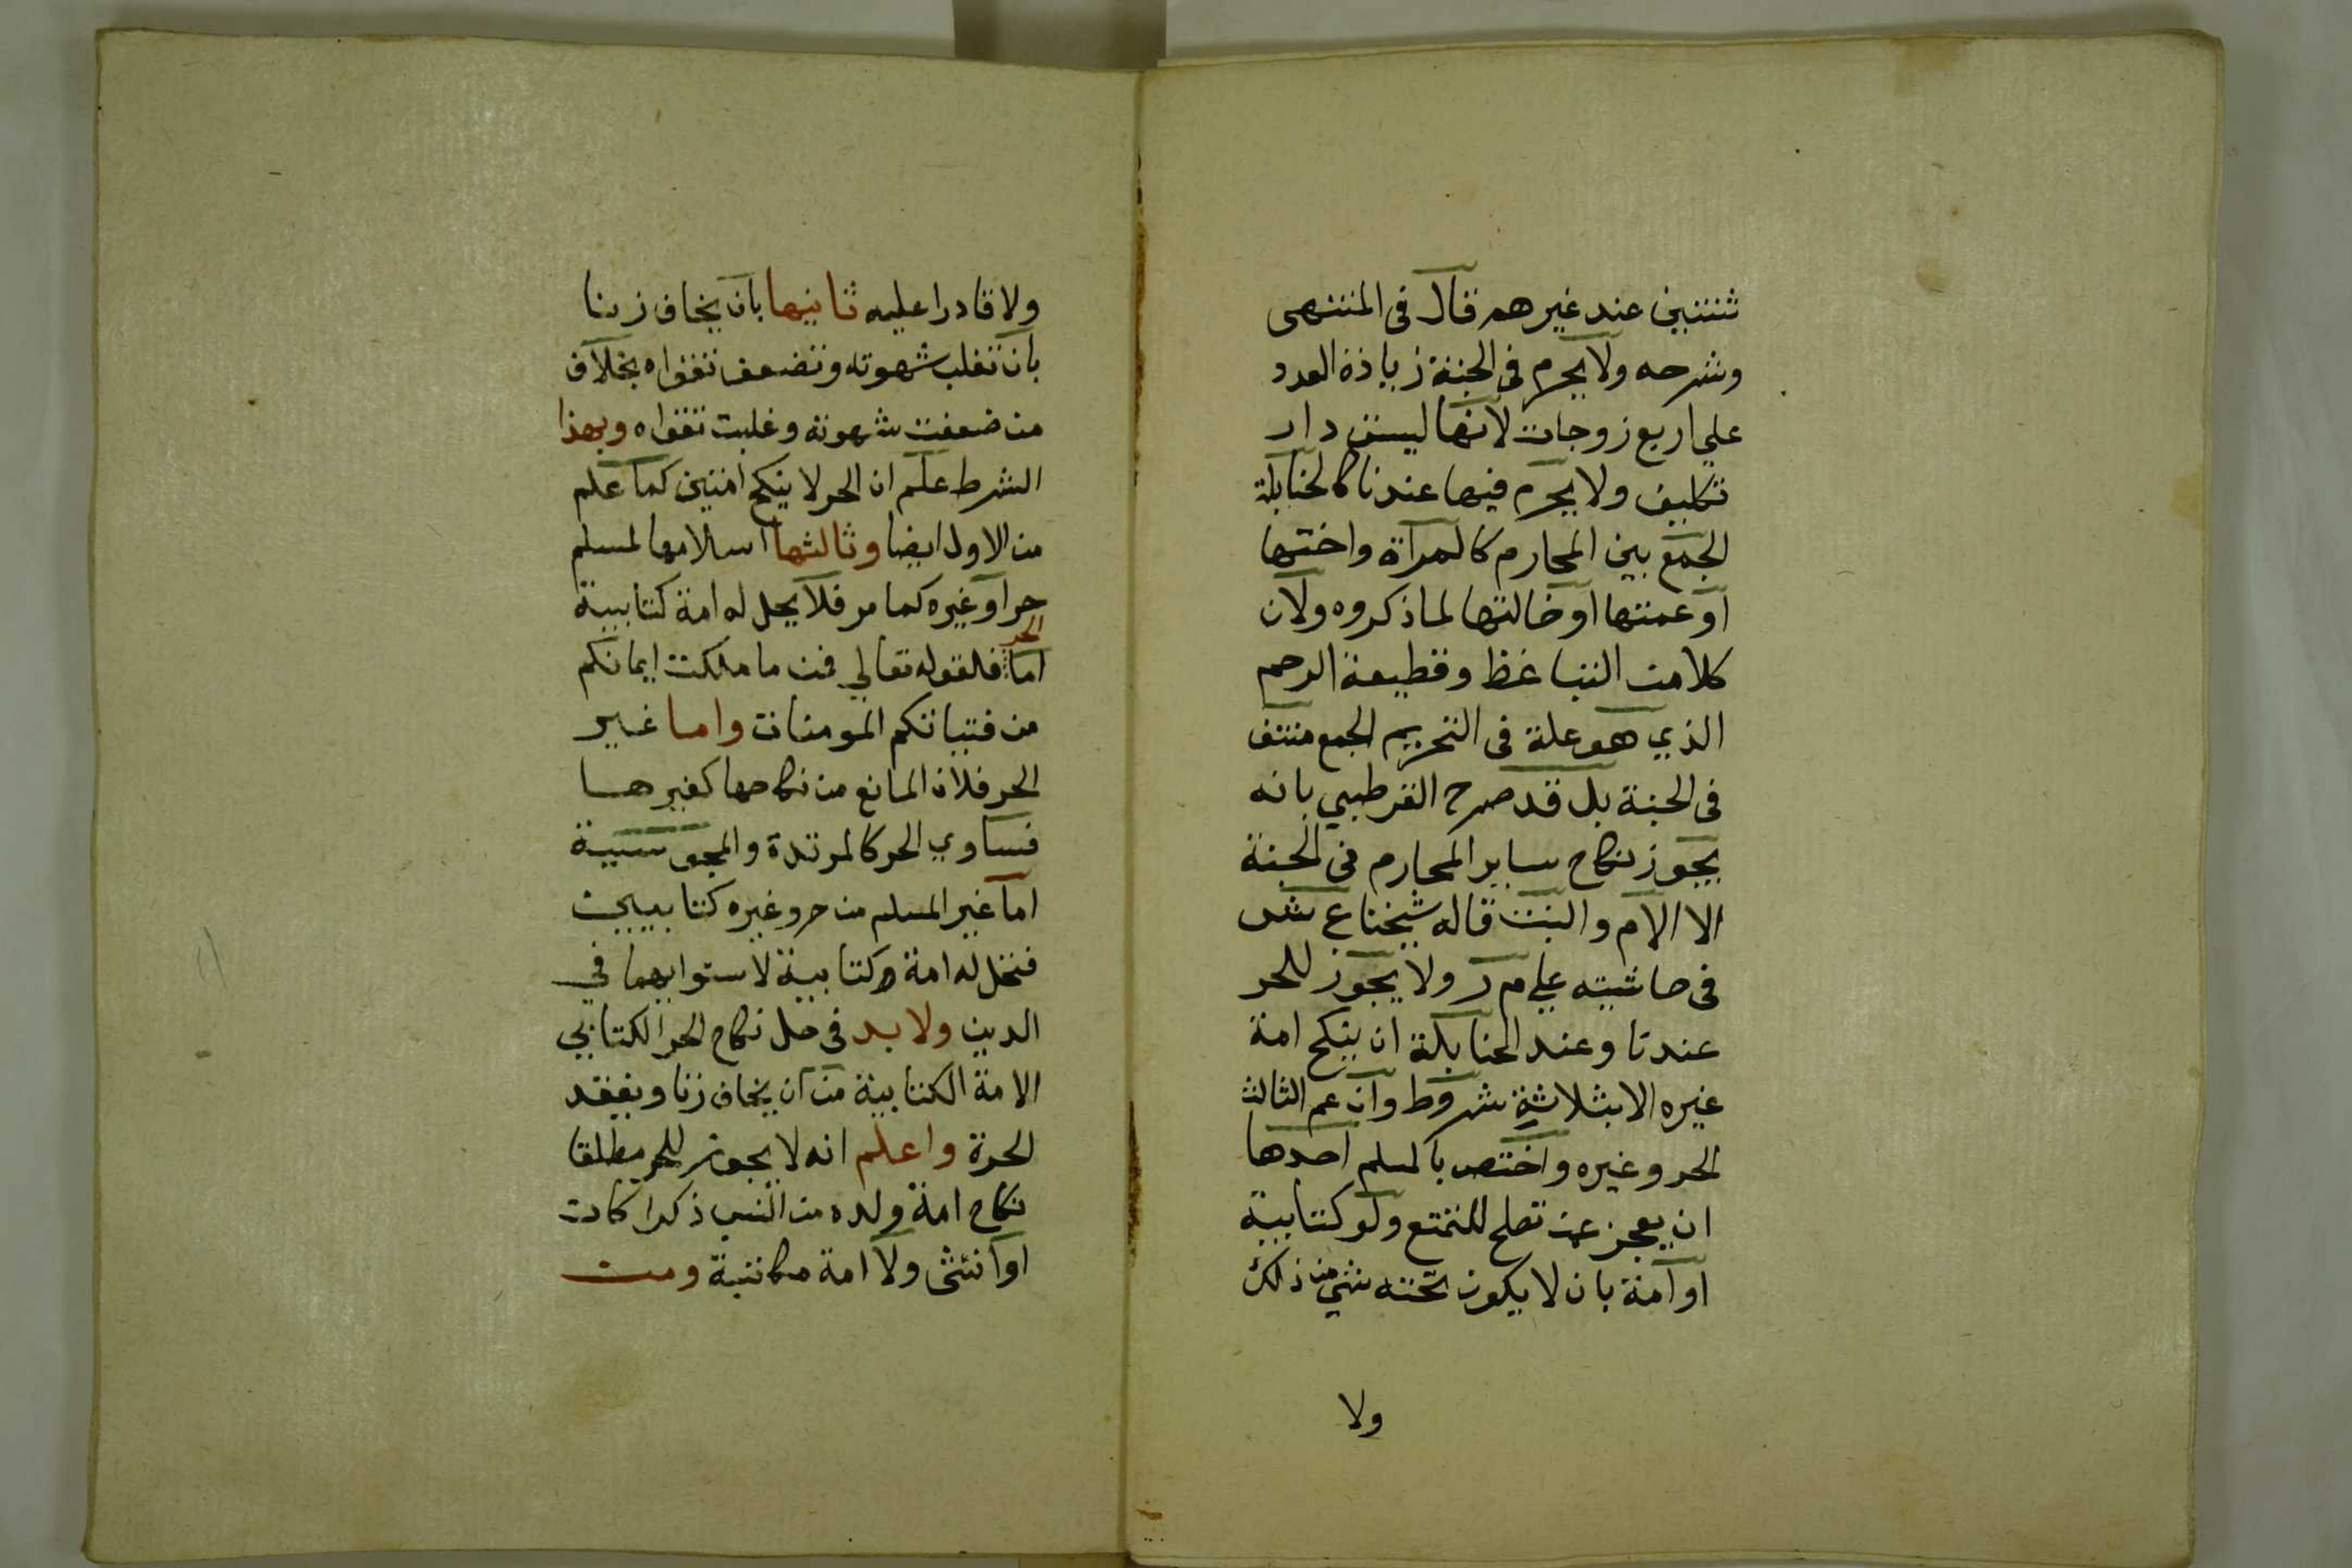 ثنتين عند غيرهم قال في المنتهى
وشرحه ولا يحرم في الجنة زيادة العدد
علي اربع زوجات لانها ليست دار
تكليف ولا يحرم فيها عندنا كالحنابلة
الجمع بين المحارم كالمرآة واختها
او عمتها او خالتها لما ذكروه ولان
كلا من التباغظ وقطيعة الرحم
الذي هو علة في التحريم الجمع منتف
في الجنة بل قد صرح القرطبي بانه
يجوز نكاح ساير المحارم في الجنة
الا الام والبنت قاله شيخنا ع ش
في حاشيته علي م ر ولا يجوز للحر
عندنا وعند الحنابلة ان ينكح امة
غيره الا بثلاثة شروط وان عم الثالث
الحر وغيره واختص بالمسلم احدها
ان يعجز عن تصلح للتمتع ولو كتابية
او امة بان لا يكون تحته شي من ذلك
ولا
ولا قادرا عليه ثانيها بان يخاف زنا
بان تغلب شهوته وتضعف تقواه بخلاف
من ضعفت شهوته وغلبت تقواه وبهذا
الشرط علم ان الحر لا ينكح امتين كما علم
من الاول ايضا وثالثها اسلامها لمسلم
حر او غيره كما مر فلا يحل له امة كتابية
اما الحر فلقوله تعالي فمن ما ملكت ايمانكم
من فتياتكم المومنات واما غير
الحر فلان المانع من نكاحها كفرها
فساوي الحر كالمرتدة والمجوسية
اما غير المسلم من حر وغيره كتابيين
فتحل له امة كتابية لاستوايهما في
الدين ولا بد في حل نكاح الحر الكتابي
الامة الكتابية من ان يخاف زنا ويفقد
الحرة واعلم انه لا يجوز للحر مطلقا
نكاح امة ولده من النسب ذكرا كان
او انثى ولا امة مكاتبة ومن